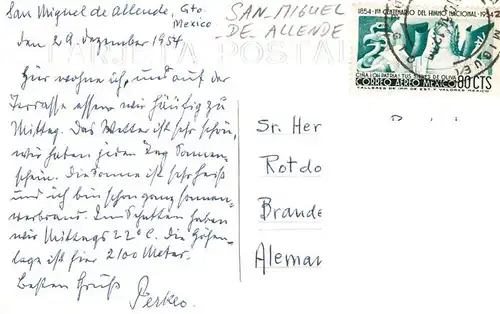 San Miguel de Allende, Gto.
Mexico
den 29. Dezember 1954
SAN MIGUEL
DE ALLENDE
TARJETA POSTAL
Hier wohne ich, und auf der
Terrasse essen wir häufig zu
Mittag. Das Wetter ist sehr schön,
wir haben jeden Tag Sonnen-
schein. Die Sonne ist sehr heiß
und ich bin schon ganz sonnen-
verbrannt. Im Schatten haben
wir Mittags 22°C. Die Höhen-
lage ist hier 2100 Meter.
Besten Gruß
Perkeo.
1854-1er CENTENARIO DEL HIMNO NACIONAL-1954
CIÑA ¡OH PATRIA! TUS SIENES DE OLIVA
CORREO AEREO MEXICO 80 CTS
TALLERES DE IMP. DE EST. Y VALORES-MEXICO
Sr. Her
Rotdo
Brande
Aleman